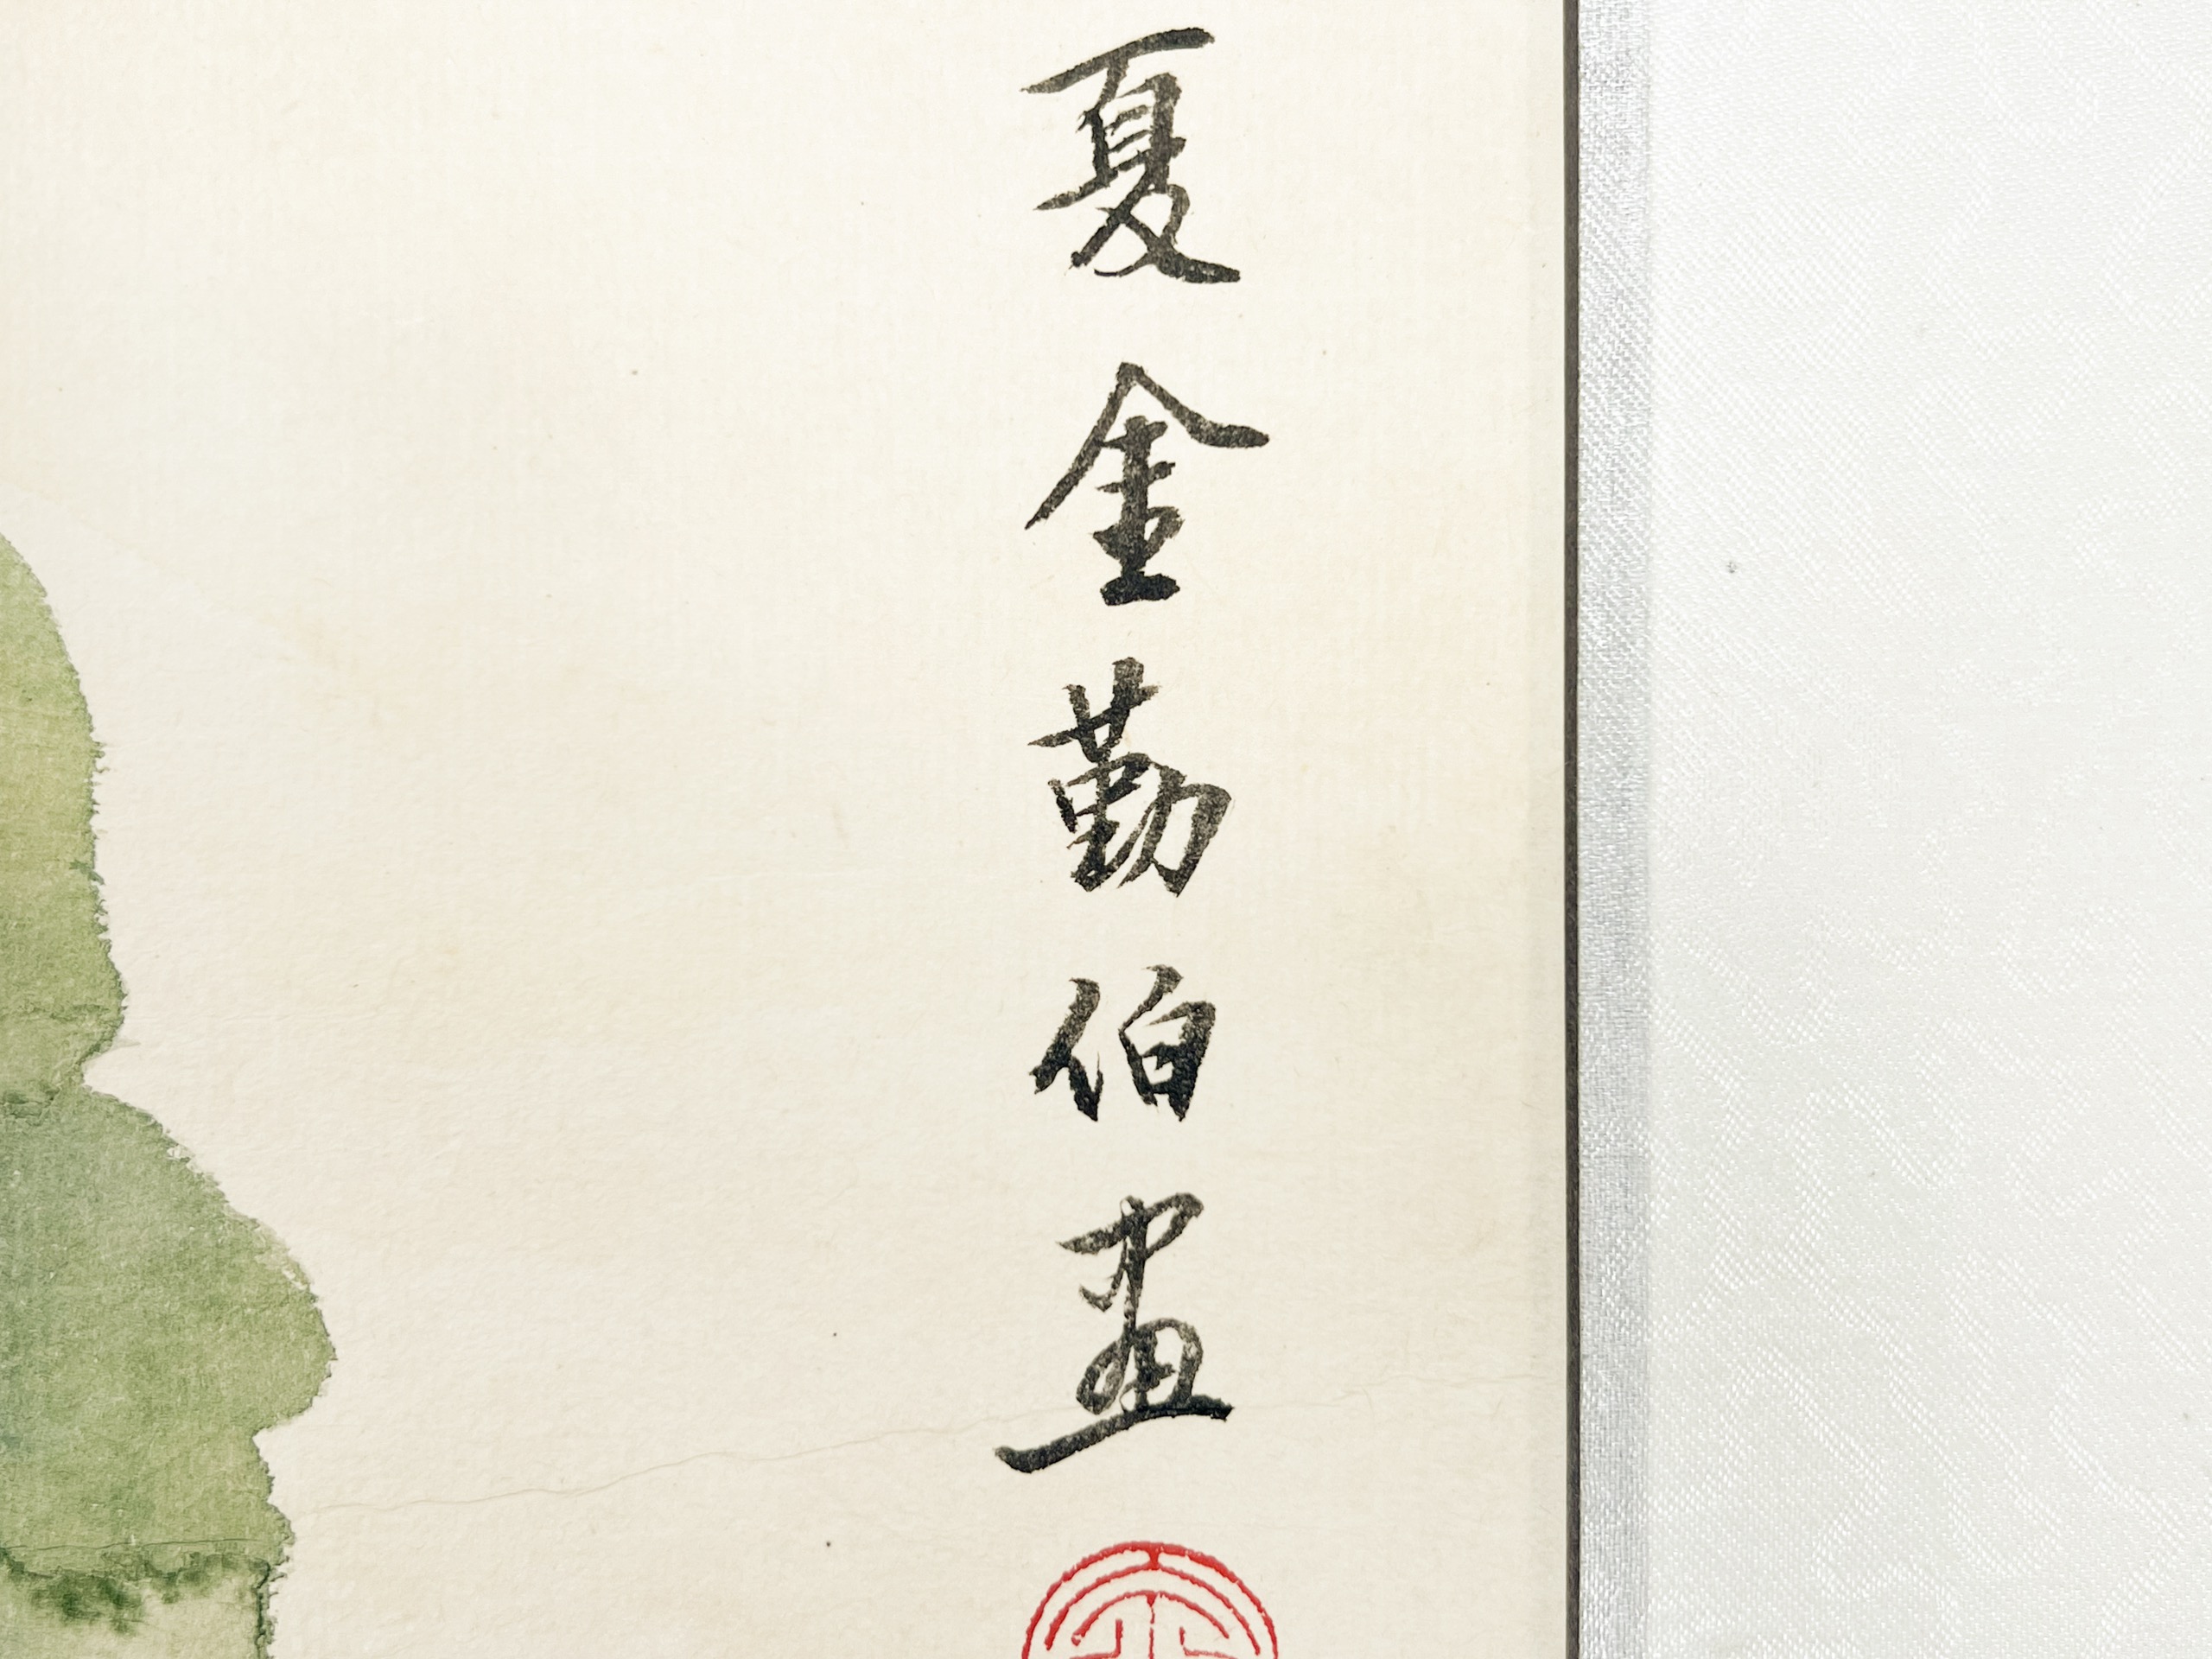 夏金勤伯画